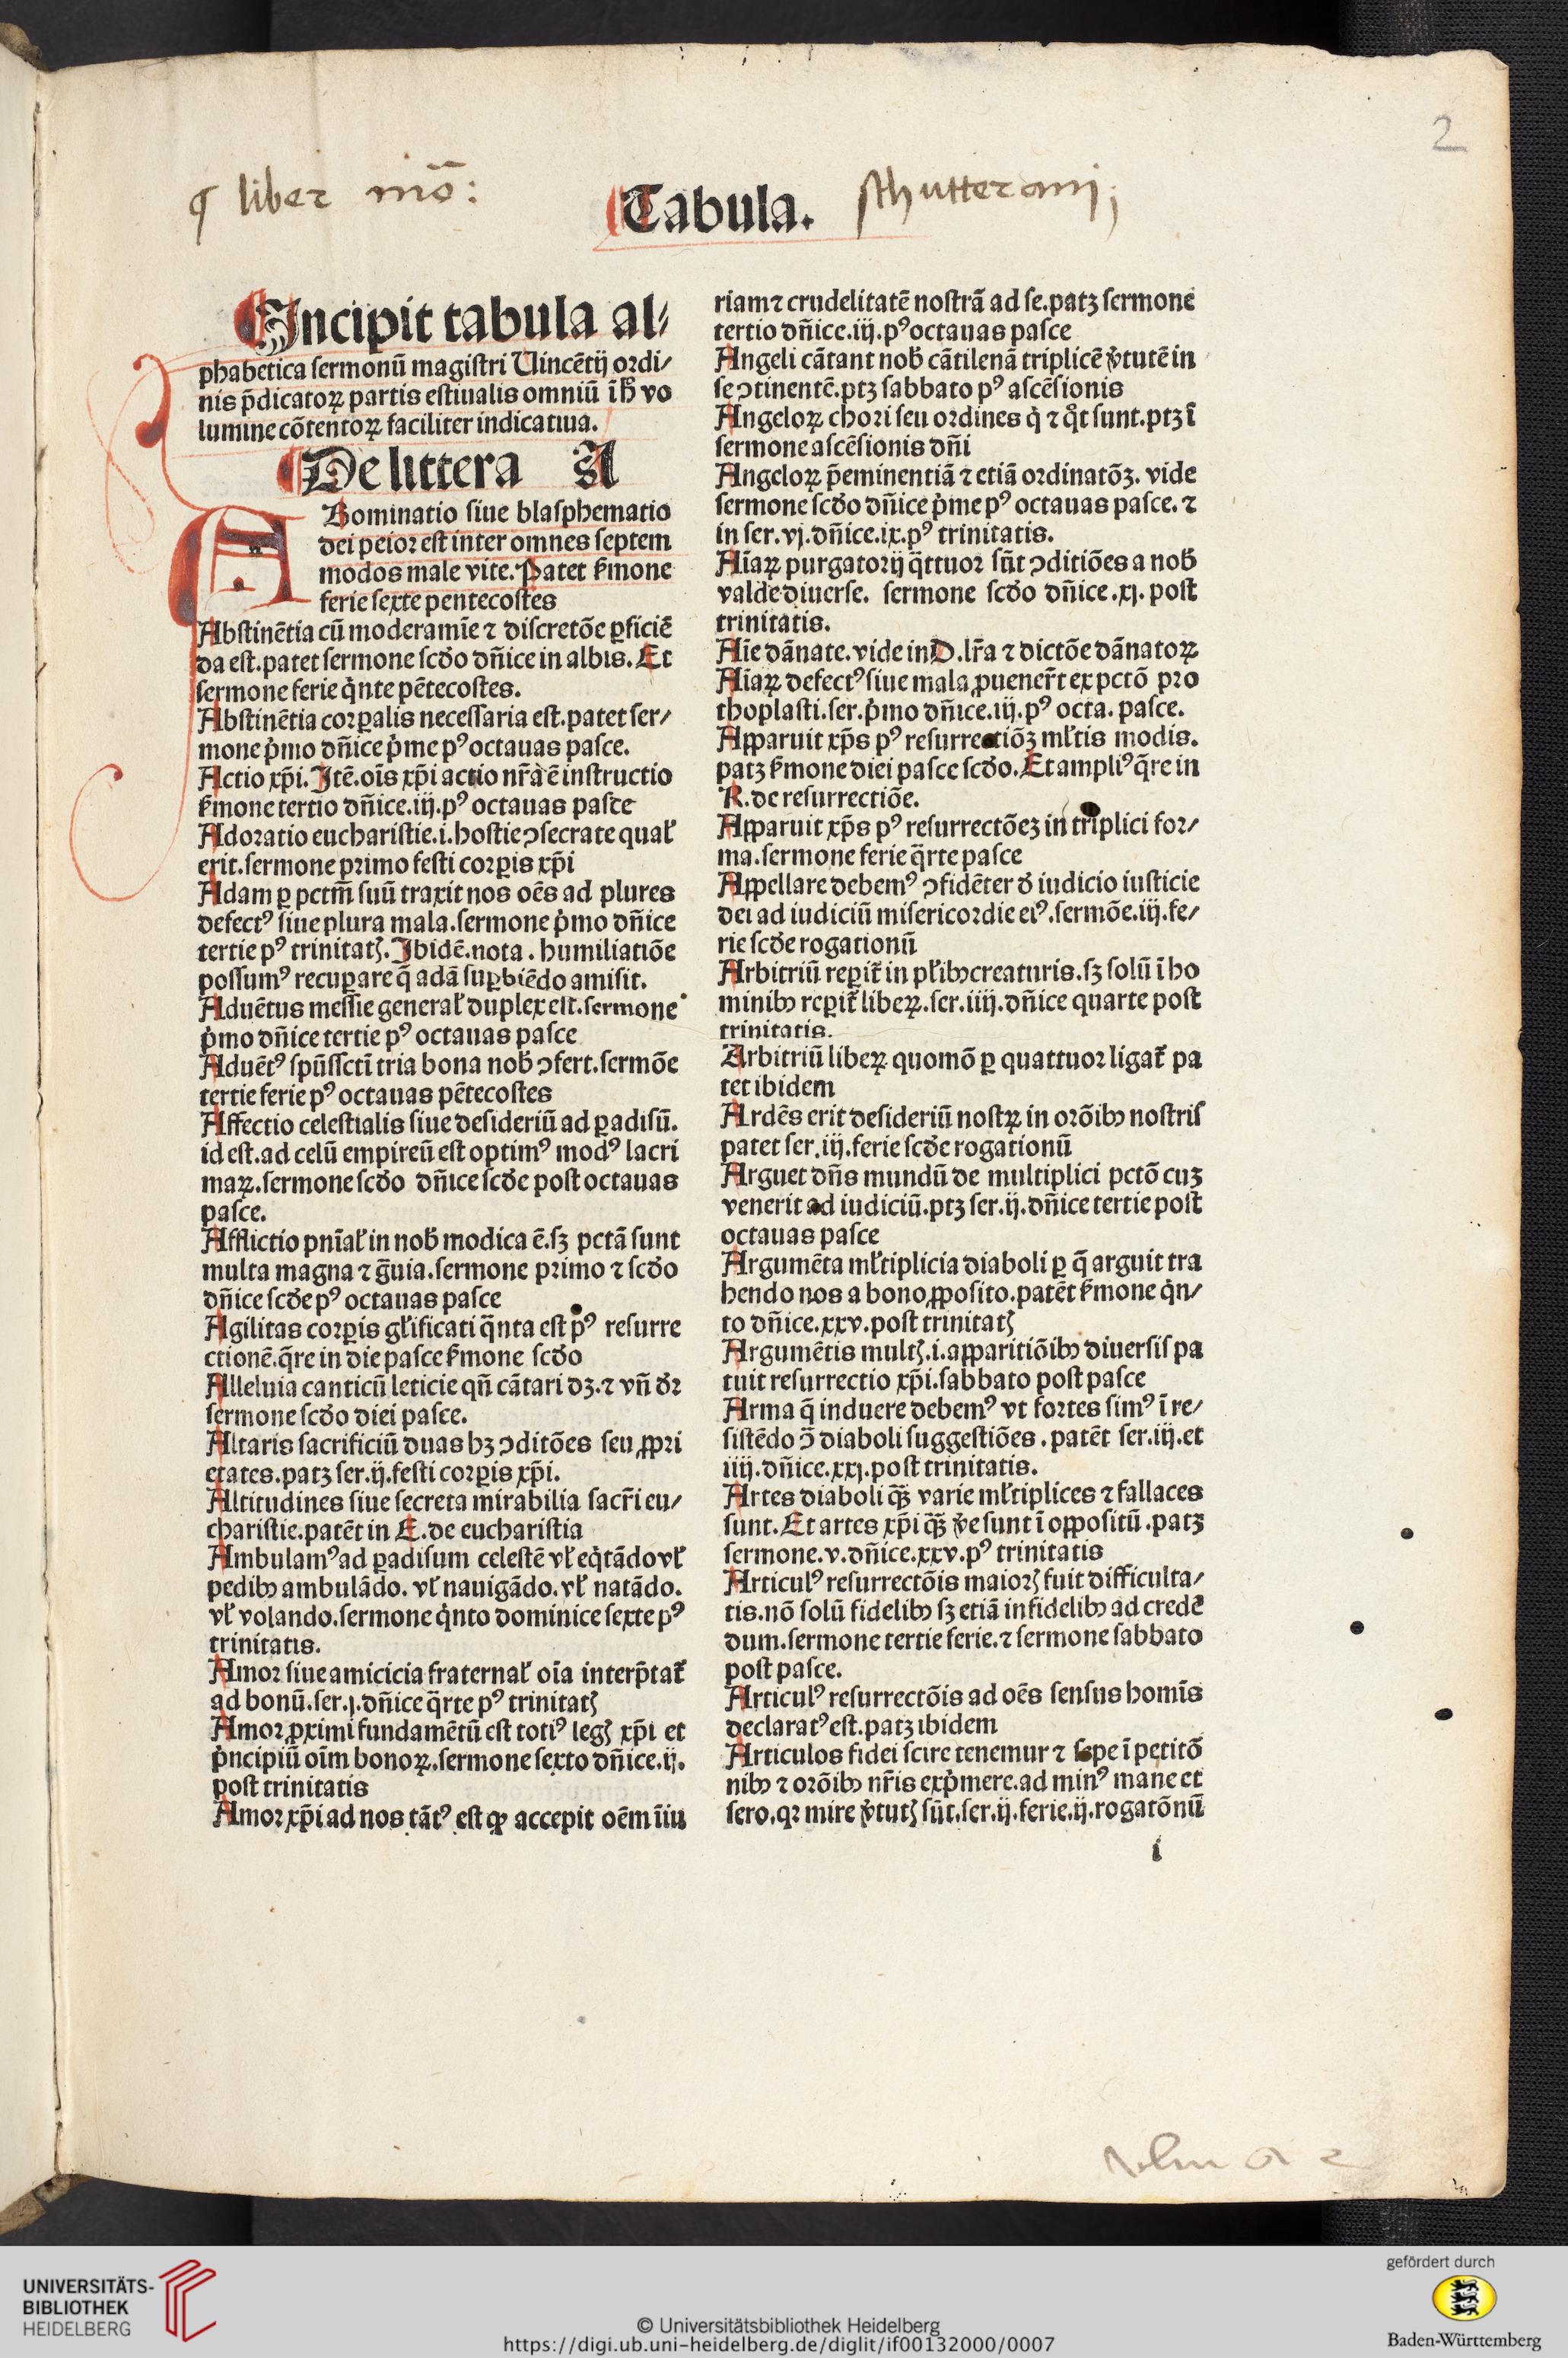 2
liber mō:
Tabula.
schutterani;
Incipit tabula al⸗
phabetica sermonū magistri Uincētij ordi/
nis p̄dicatoꝝ partis estiualis omniū ī hͦ vo
lumine cōtentoꝝ faciliter indicatiua.
De littera A
ABominatio siue blasphematio
dei peior est inter omnes septem
modos male vite. Patet ẜmone
ferie sexte pentecostes
Abstinētia cū moderamīe ⁊ discretōe ꝑficiē
da est.patet sermone scḋo dn̄ice in albis. Et
sermone ferie q̇nte pētecostes.
Abstinētia corꝑalis necessaria est.patet ser/
mone p̍mo dn̄ice p̍me pꝰ octauas pasce.
Actio xp̄i. Itē.oīs xp̄i actio nr̄a ē instructio
ẜmone tertio dn̄ice.iij.pꝰ octauas pasce
Adoratio eucharistie.i.hostie ꝯsecrate qual̓
erit.sermone primo festi corꝑis xp̄i
Adam ꝑ pctm̄ suū traxit nos oēs ad plures
defectꝰ siue plura mala.sermone p̍mo dn̄ice
tertie pꝰ trinitatꝭ. Ibidē.nota. humiliatiōe
possumꝰ recuꝑare q̄ adā suꝑbiēdo amisit.
Aduētus messie general̓ duplex est.sermone
p̍mo dn̄ice tertie pꝰ octauas pasce
Aduētꝰ spūssctī tria bona nob̓ ꝯfert.sermōe
tertie ferie pꝰ octauas pētecostes
Affectio celestialis siue desideriū ad ꝑadisū.
id est.ad celū empireū est optimꝰ modꝰ lacri
maꝝ.sermone scḋo dn̄ice scḋe post octauas
pasce.
Afflictio pnīal̓ in nob̓ modica ē.sꝫ pctā sunt
multa magna ⁊ ḡuia.sermone primo ⁊ scḋo
dn̄ice scḋe pꝰ octauas pasce
Agilitas corꝑis gl̓ificati q̄nta est pꝰ resurre
ctionē.q̄re in die pasce ẜmone scḋo
Alleluia canticū leticie qn̄ cātari dꝫ.⁊ vn̄ dr̄
sermone scḋo diei pasce.
Altaris sacrificiū duas hꝫ ꝯditōes seu ꝓpri
etates.patꝫ ser.ij.festi corꝑis xp̄i.
Altitudines siue secreta mirabilia sacr̄i eu/
charistie.patēt in E.de eucharistia
Ambulamꝰ ad ꝑadisum celestē vl̓ eq̇tādo vl̓
pedibꝰ ambulādo. vl̓ nauigādo. vl̓ natādo.
vl̓ volando.sermone q̇nto dominice sexte pꝰ
trinitatis.
Amor siue amicicia fraternal̓ oīa interp̄tat᷑
ad bonū.ser.j.dn̄ice q̄rte pꝰ trinitatꝭ
Amor ꝓximi fundamētū est totiꝰ legꝭ xp̄i et
p̍ncipiū oīm bonoꝝ.sermone sexto dn̄ice.ij.
post trinitatis
Amor xp̄i ad nos tātꝰ est ꝙ accepit oēm iīu
riam ⁊ crudelitatē nostrā ad se.patꝫ sermone
tertio dn̄ice.iij.pꝰ octauas pasce
Angeli cātant nob̓ cātilenā triplicē v̓tutē in
se ꝯtinentē.ptꝫ sabbato pꝰ ascēsionis
Angeloꝝ chori seu ordines q̇ ⁊ qͦt sunt.ptꝫ ī
sermone ascēsionis dn̄i
Angeloꝝ p̄eminentiā ⁊ etiā ordinatōꝫ. vide
sermone scḋo dn̄ice p̍me pꝰ octauas pasce.⁊
in ser.vj.dn̄ice.ix.pꝰ trinitatis.
Aīaꝝ purgatorij q̄ttuor sūt ꝯditiōes a nob̓
valde diuerse. sermone scḋo dn̄ice.xj. post
trinitatis.
Aīe dānate.vide in D.lr̄a ⁊ dictōe dānatoꝝ
Aīaꝝ defectꝰ siue mala ꝓuener̄t ex pctō pro
thoplasti.ser.p̍mo dn̄ice.iij.pꝰ octa. pasce.
Apparuit xp̄s pꝰ resurrectiōꝫ ml̓tis modis.
patꝫ ẜmone diei pasce scḋo. Et ampliꝰ q̄re in
R.de resurrectiōe.
Apparuit xp̄s pꝰ resurrectōeꝫ in triplici for/
ma.sermone ferie q̄rte pasce
Appellare debemꝰ ꝯfidēter ḋ iudicio iusticie
dei ad iudiciū misericordie eiꝰ.sermōe.iij.fe/
rie scḋe rogationū
Arbitriū reꝑit᷑ in pl̓ibꝰ creaturis.sꝫ solū ī ho
minibꝰ reꝑit᷑ libeꝝ.ser.iiij.dn̄ice quarte post
trinitatis.
Arbitriū libeꝝ quomō ꝑ quattuor ligat᷑ pa
tet ibidem
Ardēs erit desideriū nostꝝ in orōibꝰ nostris
patet ser.iij.ferie scḋe rogationū
Arguet dn̄s mundū de multiplici pctō cuꝫ
venerit ad iudiciū.ptꝫ ser.ij.dn̄ice tertie post
octauas pasce
Argumēta ml̓tiplicia diaboli ꝑ q̄ arguit tra
hendo nos a bono ꝓposito.patēt ẜmone q̇n/
to dn̄ice.xxv.post trinitatꝭ
Argumētis multꝭ.i.apparitiōibꝰ diuersis pa
tuit resurrectio xp̄i.sabbato post pasce
Arma q̄ induere debemꝰ vt fortes simꝰ ī re/
sistēdo ꝯ̄ diaboli suggestiōes.patēt ser.iij.et
iiij.dn̄ice.xxj.post trinitatis.
Artes diaboli qꝫ̄ varie ml̓tiplices ⁊ fallaces
sunt. Et artes xp̄i qꝫ̄ v̓e sunt ī oppositū.patꝫ
sermone.v.dn̄ice.xxv.pꝰ trinitatis
Articulꝰ resurrectōis maiorꝭ fuit difficulta/
tis.nō solū fidelibꝰ sꝫ etiā infidelibꝰ ad credē
dum.sermone tertie ferie.⁊ sermone sabbato
post pasce.
Articulꝰ resurrectōis ad oēs sensus homīs
declaratꝰ est.patꝫ ibidem
Articulos fidei scire tenemur ⁊ sepe ī petitō
nibꝰ ⁊ orōibꝰ nr̄is exp̍mere.ad minꝰ mane et
sero.qꝛ mire v̓tutꝭ sūt.ser.ij.ferie.ij.rogatōnū
i
UNIVERSITÄTS-
BIBLIOTHEK
HEIDELBERG
© Universitätsbibliothek Heidelberg
https://digi.ub.uni-heidelberg.de/diglit/if00132000/0007
gefördert durch
Baden-Württemberg